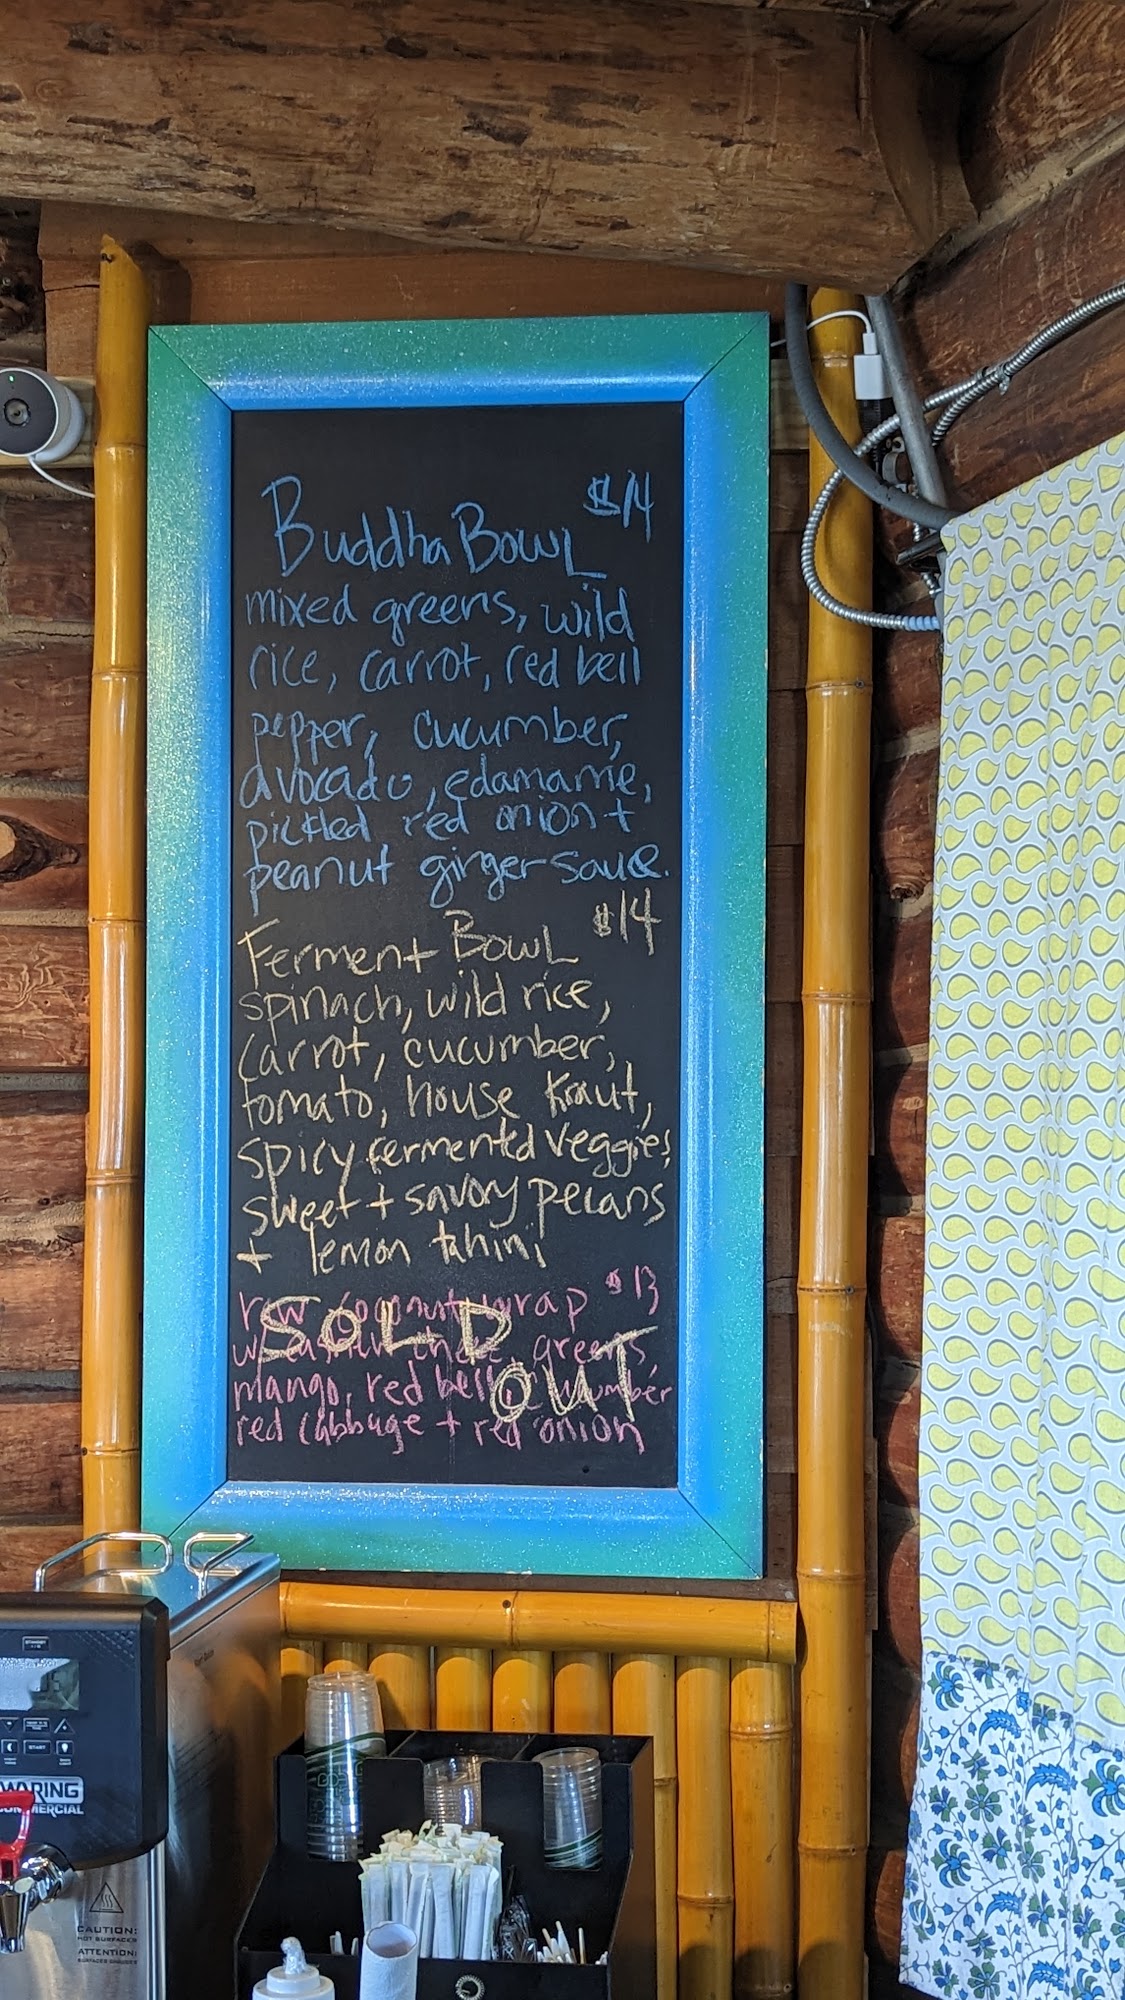 Buddha Bowl $14
mixed greens, wild
rice, carrot, red bell
pepper, cucumber,
avocado, edamame,
pickled red onion +
peanut ginger sauce.
Ferment Bowl $14
spinach, wild rice,
carrot, cucumber,
tomato, house kraut,
spicy fermented veggies,
sweet + savory pecans
+ lemon tahini
raw coconut wrap $13
SOLD
w/ cashew greens,
OUT
mango, red bell, cucumber
red cabbage + red onion
STANDBY
START
WARING
COMMERCIAL
CAUTION:
HOT SURFACES
ATTENTION:
SURFACES CHAUDES